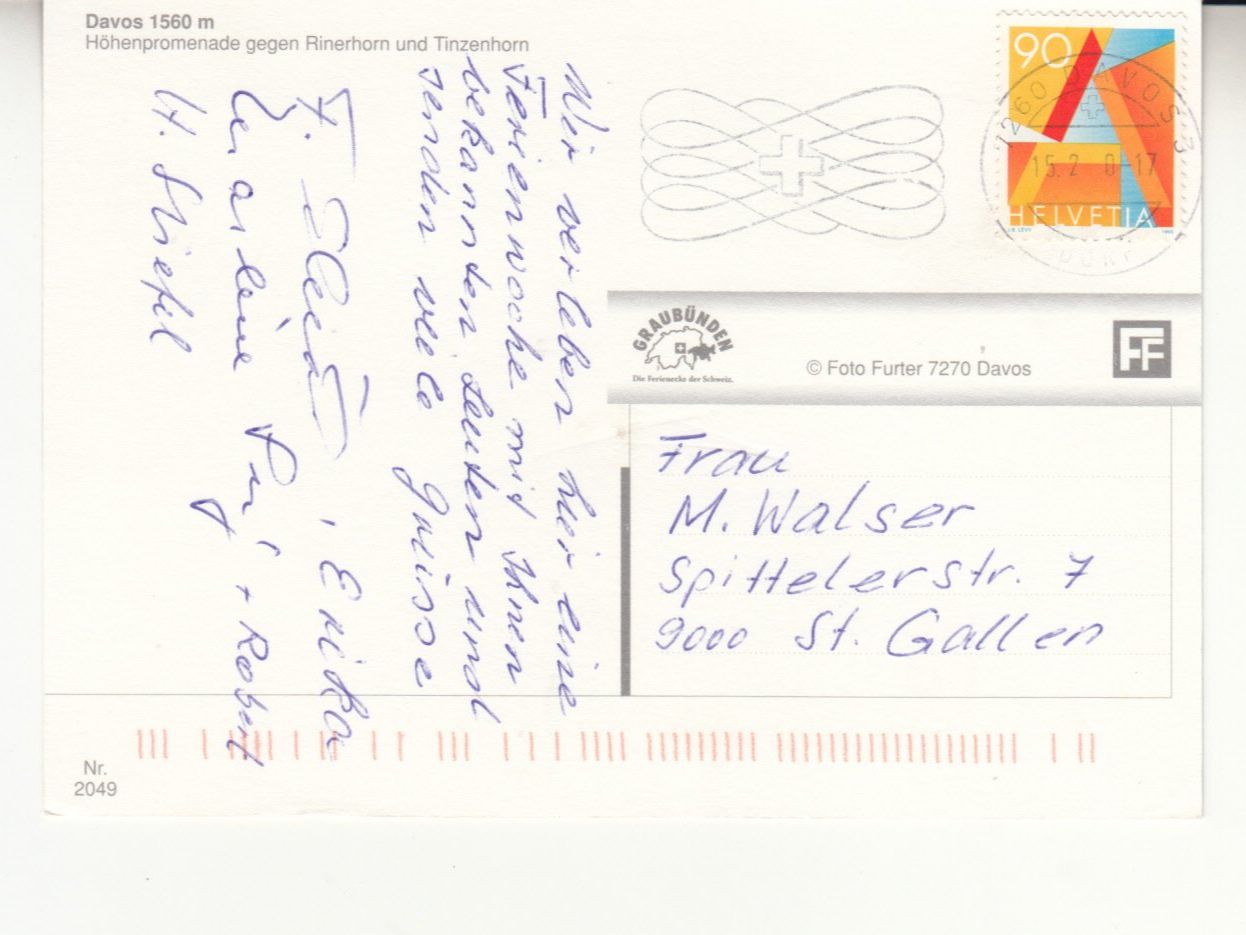 Davos 1560 m
Höhenpromenade gegen Rinerhorn und Tinzenhorn
Wir verleben hier eine
Ferienwoche mit Ihnen
bekannten Leuten und
senden viele Grüsse
, Erika
+ Robert
H. Stiefel
90
HELVETIA
7260 DAVOS 3
15.2 0-17
DORF
GRAUBÜNDEN
Die Ferienecke der Schweiz.
© Foto Furter 7270 Davos
FF
Frau
M. Walser
Spittelerstr. 7
9000 St. Gallen
Nr.
2049